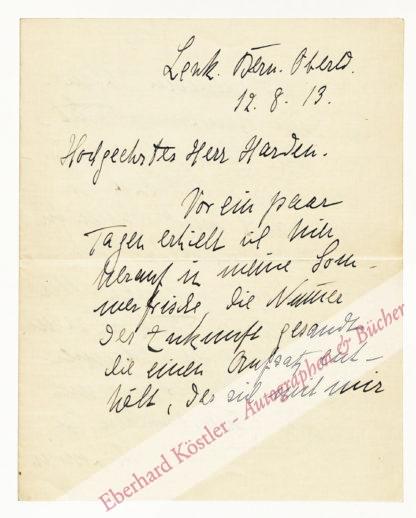 Lenk. Bern. Oberld.
12. 8. 13.
Hochgeehrtes Herr Harden.
Vor ein paar
Tagen erhielt ich hier
herauf in meine Som-
merfrische, die Numer
der Zukunft gesandt,
die einen Aufsatz ent-
hält, der sich mit mir
Eberhard Köstler - Autographen & Bücher